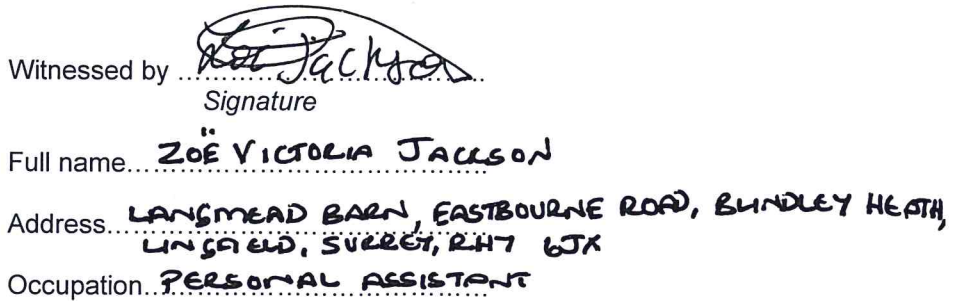 Witnessed by Zoë Jackson
Signature
Full name ZOË VICTORIA JACKSON
Address LANGMEAD BARN, EASTBOURNE ROAD, BLINDLEY HEATH,
LINGFIELD, SURREY, RH7 6JX
Occupation PERSONAL ASSISTANT